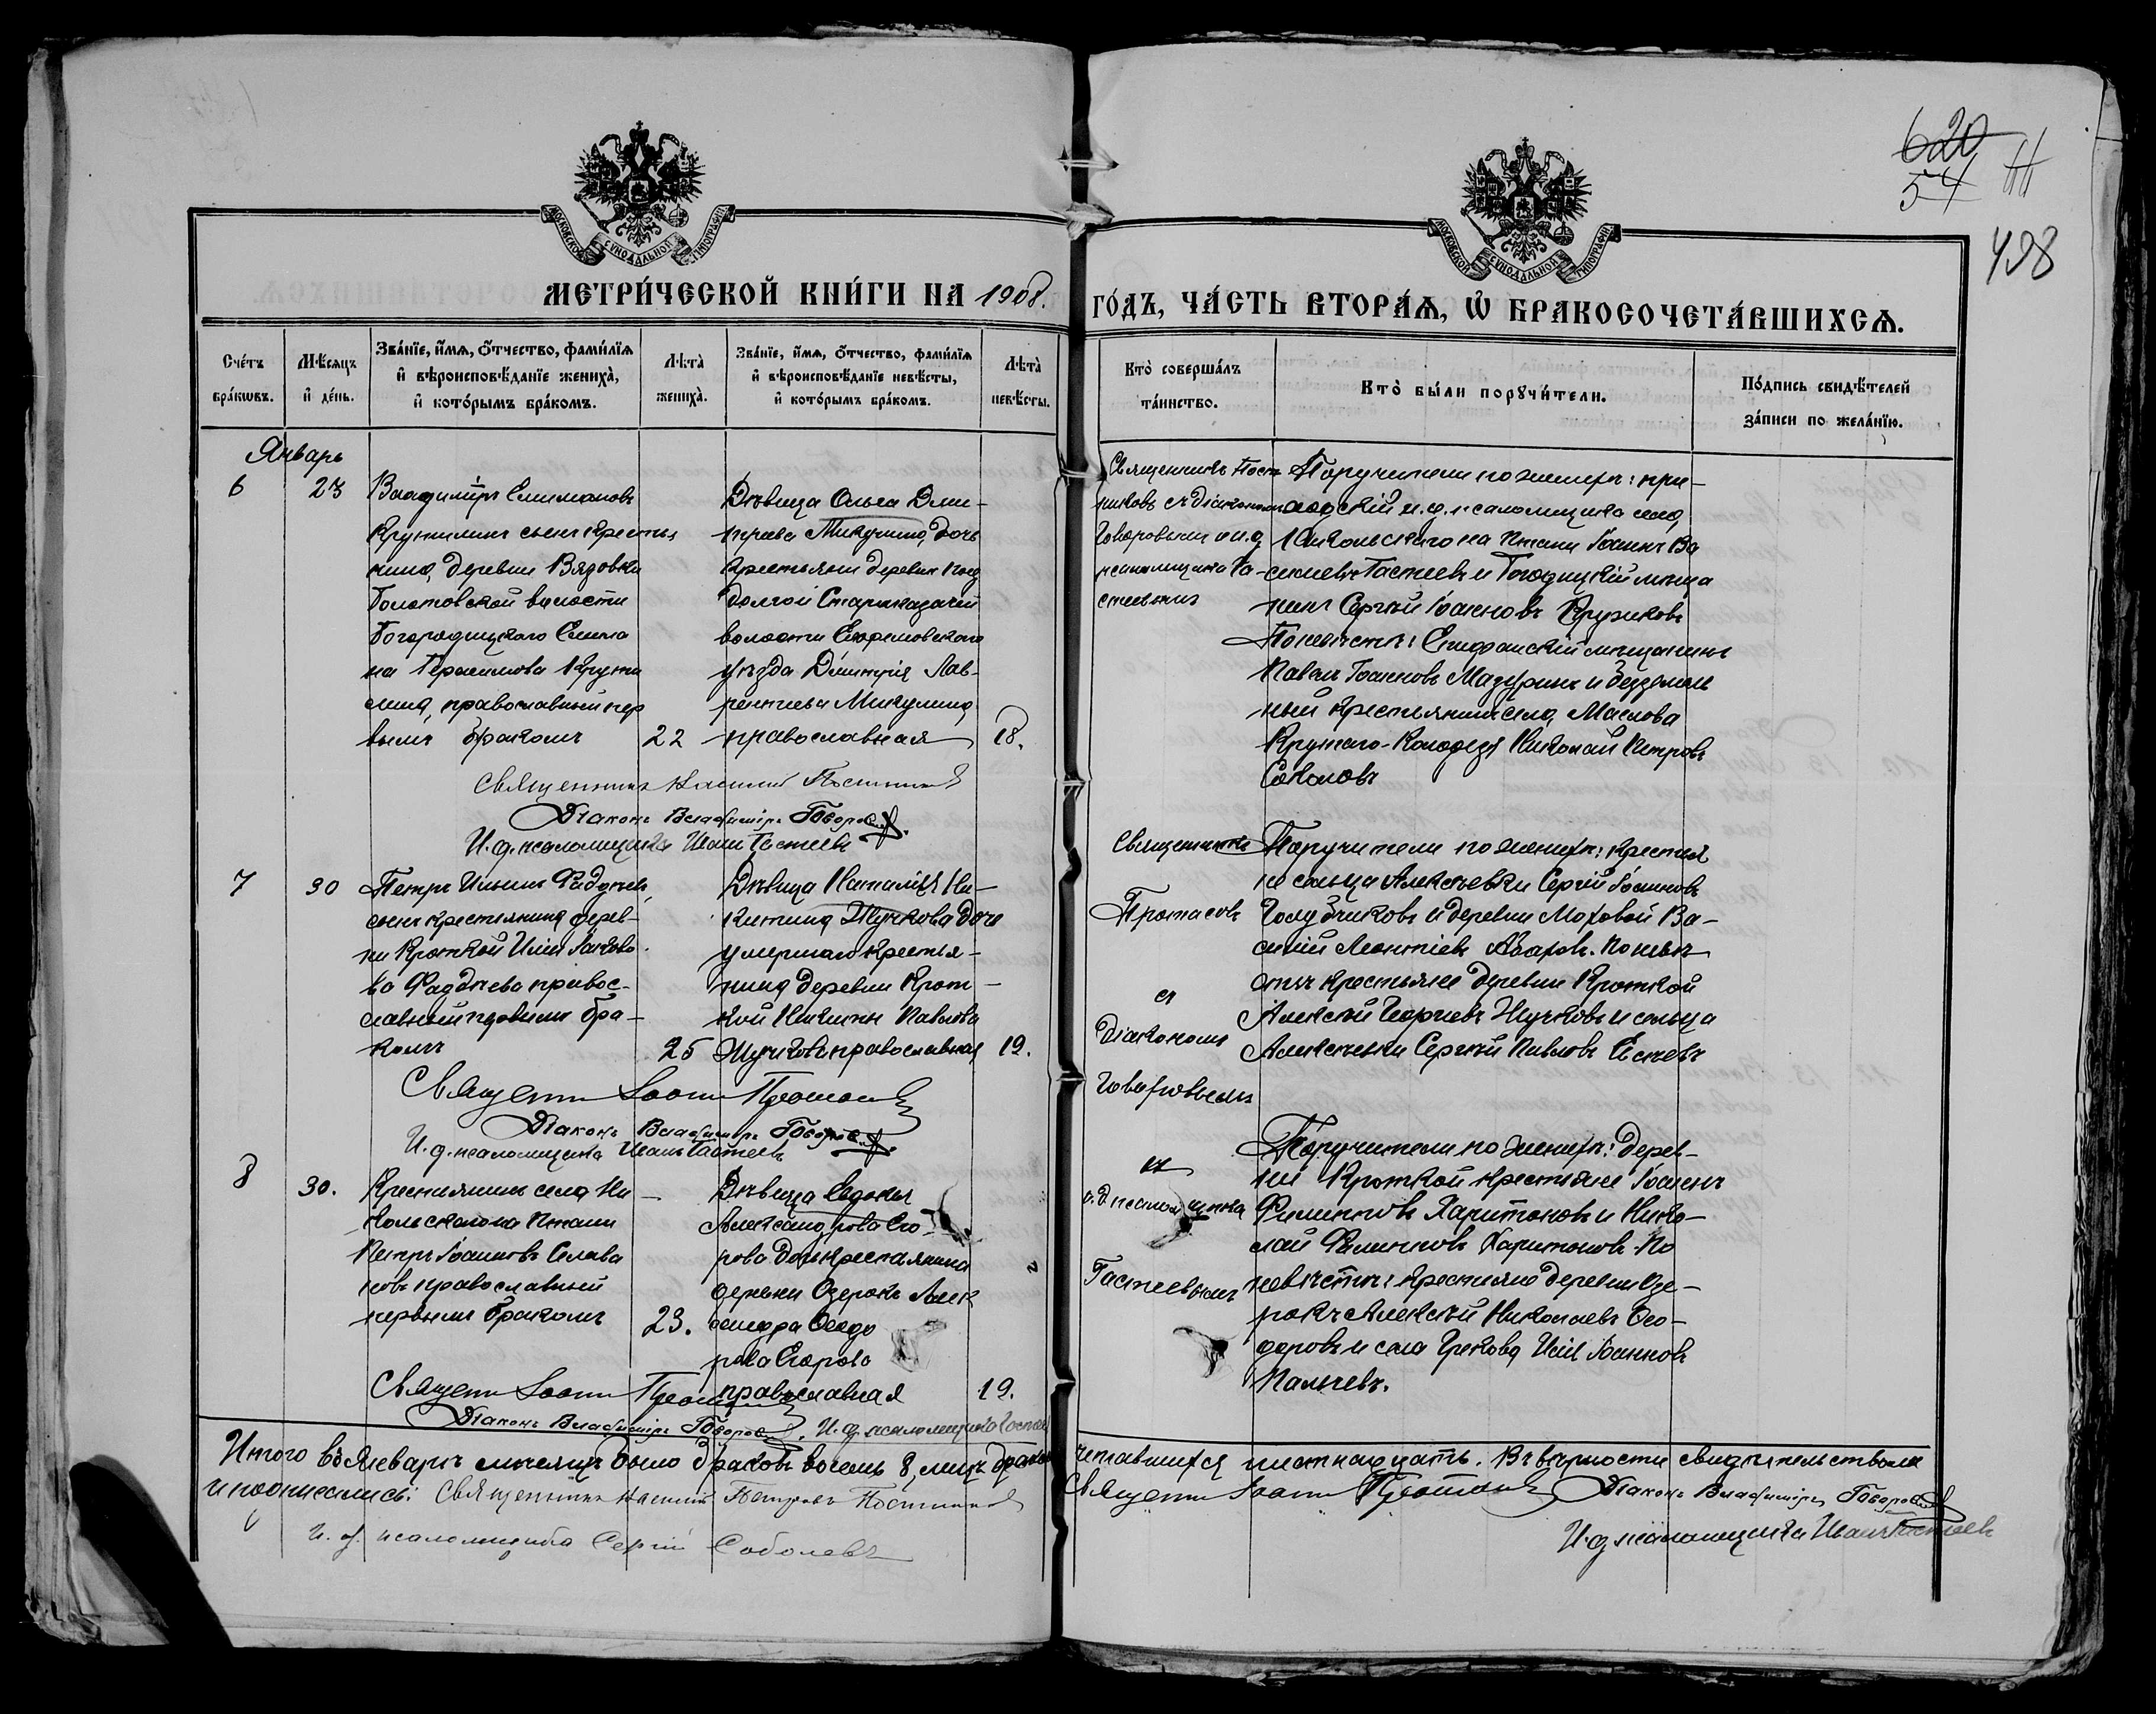 620
54
498
МОСКОВСКОЙ СУНОДАЛЬНОЙ ТИПОГРАФІИ
МОСКОВСКОЙ СУНОДАЛЬНОЙ ТИПОГРАФІИ
МЕТРИ́ЧЕСКОЙ КНИ́ГИ НА 1908.
ГО́ДЪ, ЧА́СТЬ ВТОРА́Я, Ѡ҆ БРАКОСОЧЕТА́ВШИХСЯ.
Сче́тъ
бра́кѡвъ.
Мѣ́сяцъ
и҆ де́нь.
Зва́нїе, и҆́мя, ѻ҆́тчество, фами́лїя
и҆ вѣроисповѣ́данїе жениха̀,
и҆ кото́рымъ бра́комъ.
Лѣта̀
жениха̀.
Зва́нїе, и҆́мя, ѻ҆́тчество, фами́лїя
и҆ вѣроисповѣ́данїе невѣ́сты,
и҆ кото́рымъ бра́комъ.
Лѣта̀
невѣ́сты.
Кто̀ соверша́лъ
та́инство.
Кто̀ бы́ли порꙋчи́тели.
По́дпись свидѣ́телей
за́писи по жела́нїю.
Январь
6
23
Владиміръ Елимановъ
Крутилинъ сынъ крестья
нина, деревни Вязовки
волости
Богородицкаго Елима
на Герасимова Крути
лина, православный пер
вымъ бракомъ
22
Дѣвица Ольга Дми-
тріева Микулина, дочь
крестьянина деревни Под
долгой Стариказачей
волости Епифановскаго
уѣзда Димитрія Лав-
рентіева Микулина,
православная
18.
Священникъ Пост
никовъ съ діакономъ
Говоровымъ и и.д.
псаломщика Га-
стевымъ
Поручители по женихѣ: при-
и.д. псаломщика села
Никольскаго на Птани Іоаннъ Ва
сильевъ Гастевъ и мѣща
нинъ Сергѣй Іоанновъ Кузиковъ
По невѣстѣ: Епифанскій мѣщанинъ
Павелъ Іоанновъ Мазуринъ и безземель
ный крестьянинъ села Маслова
Крутаго-Колодезя Николай Петровъ
Соколовъ
Діаконъ Владиміръ Говоровъ.
И. д. псаломщика Иванъ Гастевъ
7
30
Петръ Ильинъ Фаддѣевъ,
сынъ крестьянина дерев-
ни Кроткой Иліи Іаковле
ва Фаддѣева правос-
славный первымъ бра-
комъ
25
Дѣвица Наталія Ни-
китина Жучкова дочь
умершаго крестья-
нина деревни Крот-
кой Никиты Павлова
Жучкова православная
19.
Священникъ
Протасовъ
съ
діакономъ
Говоровымъ
Поручители по женихѣ: крестья
не сельца Алексѣевки Сергѣй Іоанновъ
Голубчиковъ и деревни Моховой Ва-
силій Леонтіевъ Азаровъ. По невѣ
стѣ крестьяне деревни Кроткой
Алексѣй Георгіевъ Жучковъ и сельца
Алексѣевки Сергѣй Павловъ
Священникъ Іоаннъ Протасовъ
Діаконъ Владиміръ Говоровъ.
И. д. псаломщика Иванъ Гастевъ
8
30.
Крестьянинъ села Ни-
кольскаго на Птани
Петръ Іоанновъ Селива
новъ православный
первымъ бракомъ
23.
Дѣвица Евдокія
Александрова Его-
рова дочь крестьянина
деревни Озерокъ Алек
сандра Ѳеодо
рова Егорова
православная
19.
и
и.д. псаломщика
Гастевымъ
Поручители по женихѣ: дерев-
ни Кроткой крестьяне Іоаннъ
Филипповъ Харитоновъ и Нико-
лай Филипповъ Харитоновъ. По
невѣстѣ: крестьяне деревни Озе-
рокъ Алексѣй Николаевъ Ѳео-
доровъ и села Грекова Илія Іоанновъ
Пальчевъ.
Священникъ Іоаннъ Протасовъ
Діаконъ Владиміръ Говоровъ. И. д. псаломщика Гастевъ
Итого въ Январѣ мѣсяцѣ было браковъ восемь 8, лицъ бракосо
четавшихся шестнадцать. Въ вѣрности свидѣтельствуемъ
и подписались: Священникъ Василій Петровъ Постниковъ
Священникъ Іоаннъ Протасовъ Діаконъ Владиміръ Говоровъ
И. д. псаломщика Сергій Соболевъ
И. д. псаломщика Иванъ Гастевъ